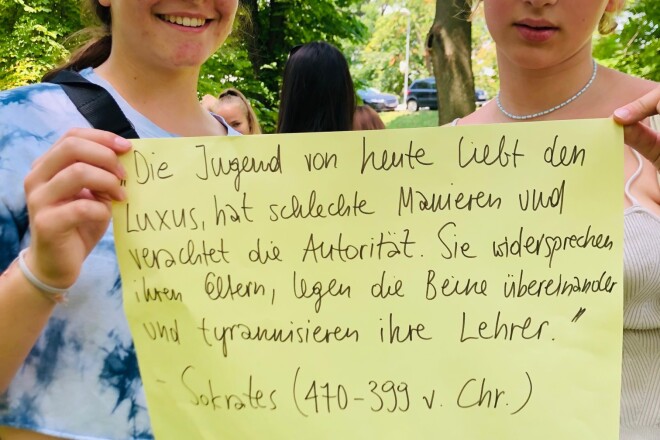 „Die Jugend von heute liebt den
Luxus, hat schlechte Manieren und
verachtet die Autorität. Sie widersprechen
ihren Eltern, legen die Beine übereinander
und tyrannisieren ihre Lehrer."
- Sokrates (470-399 v. Chr.)